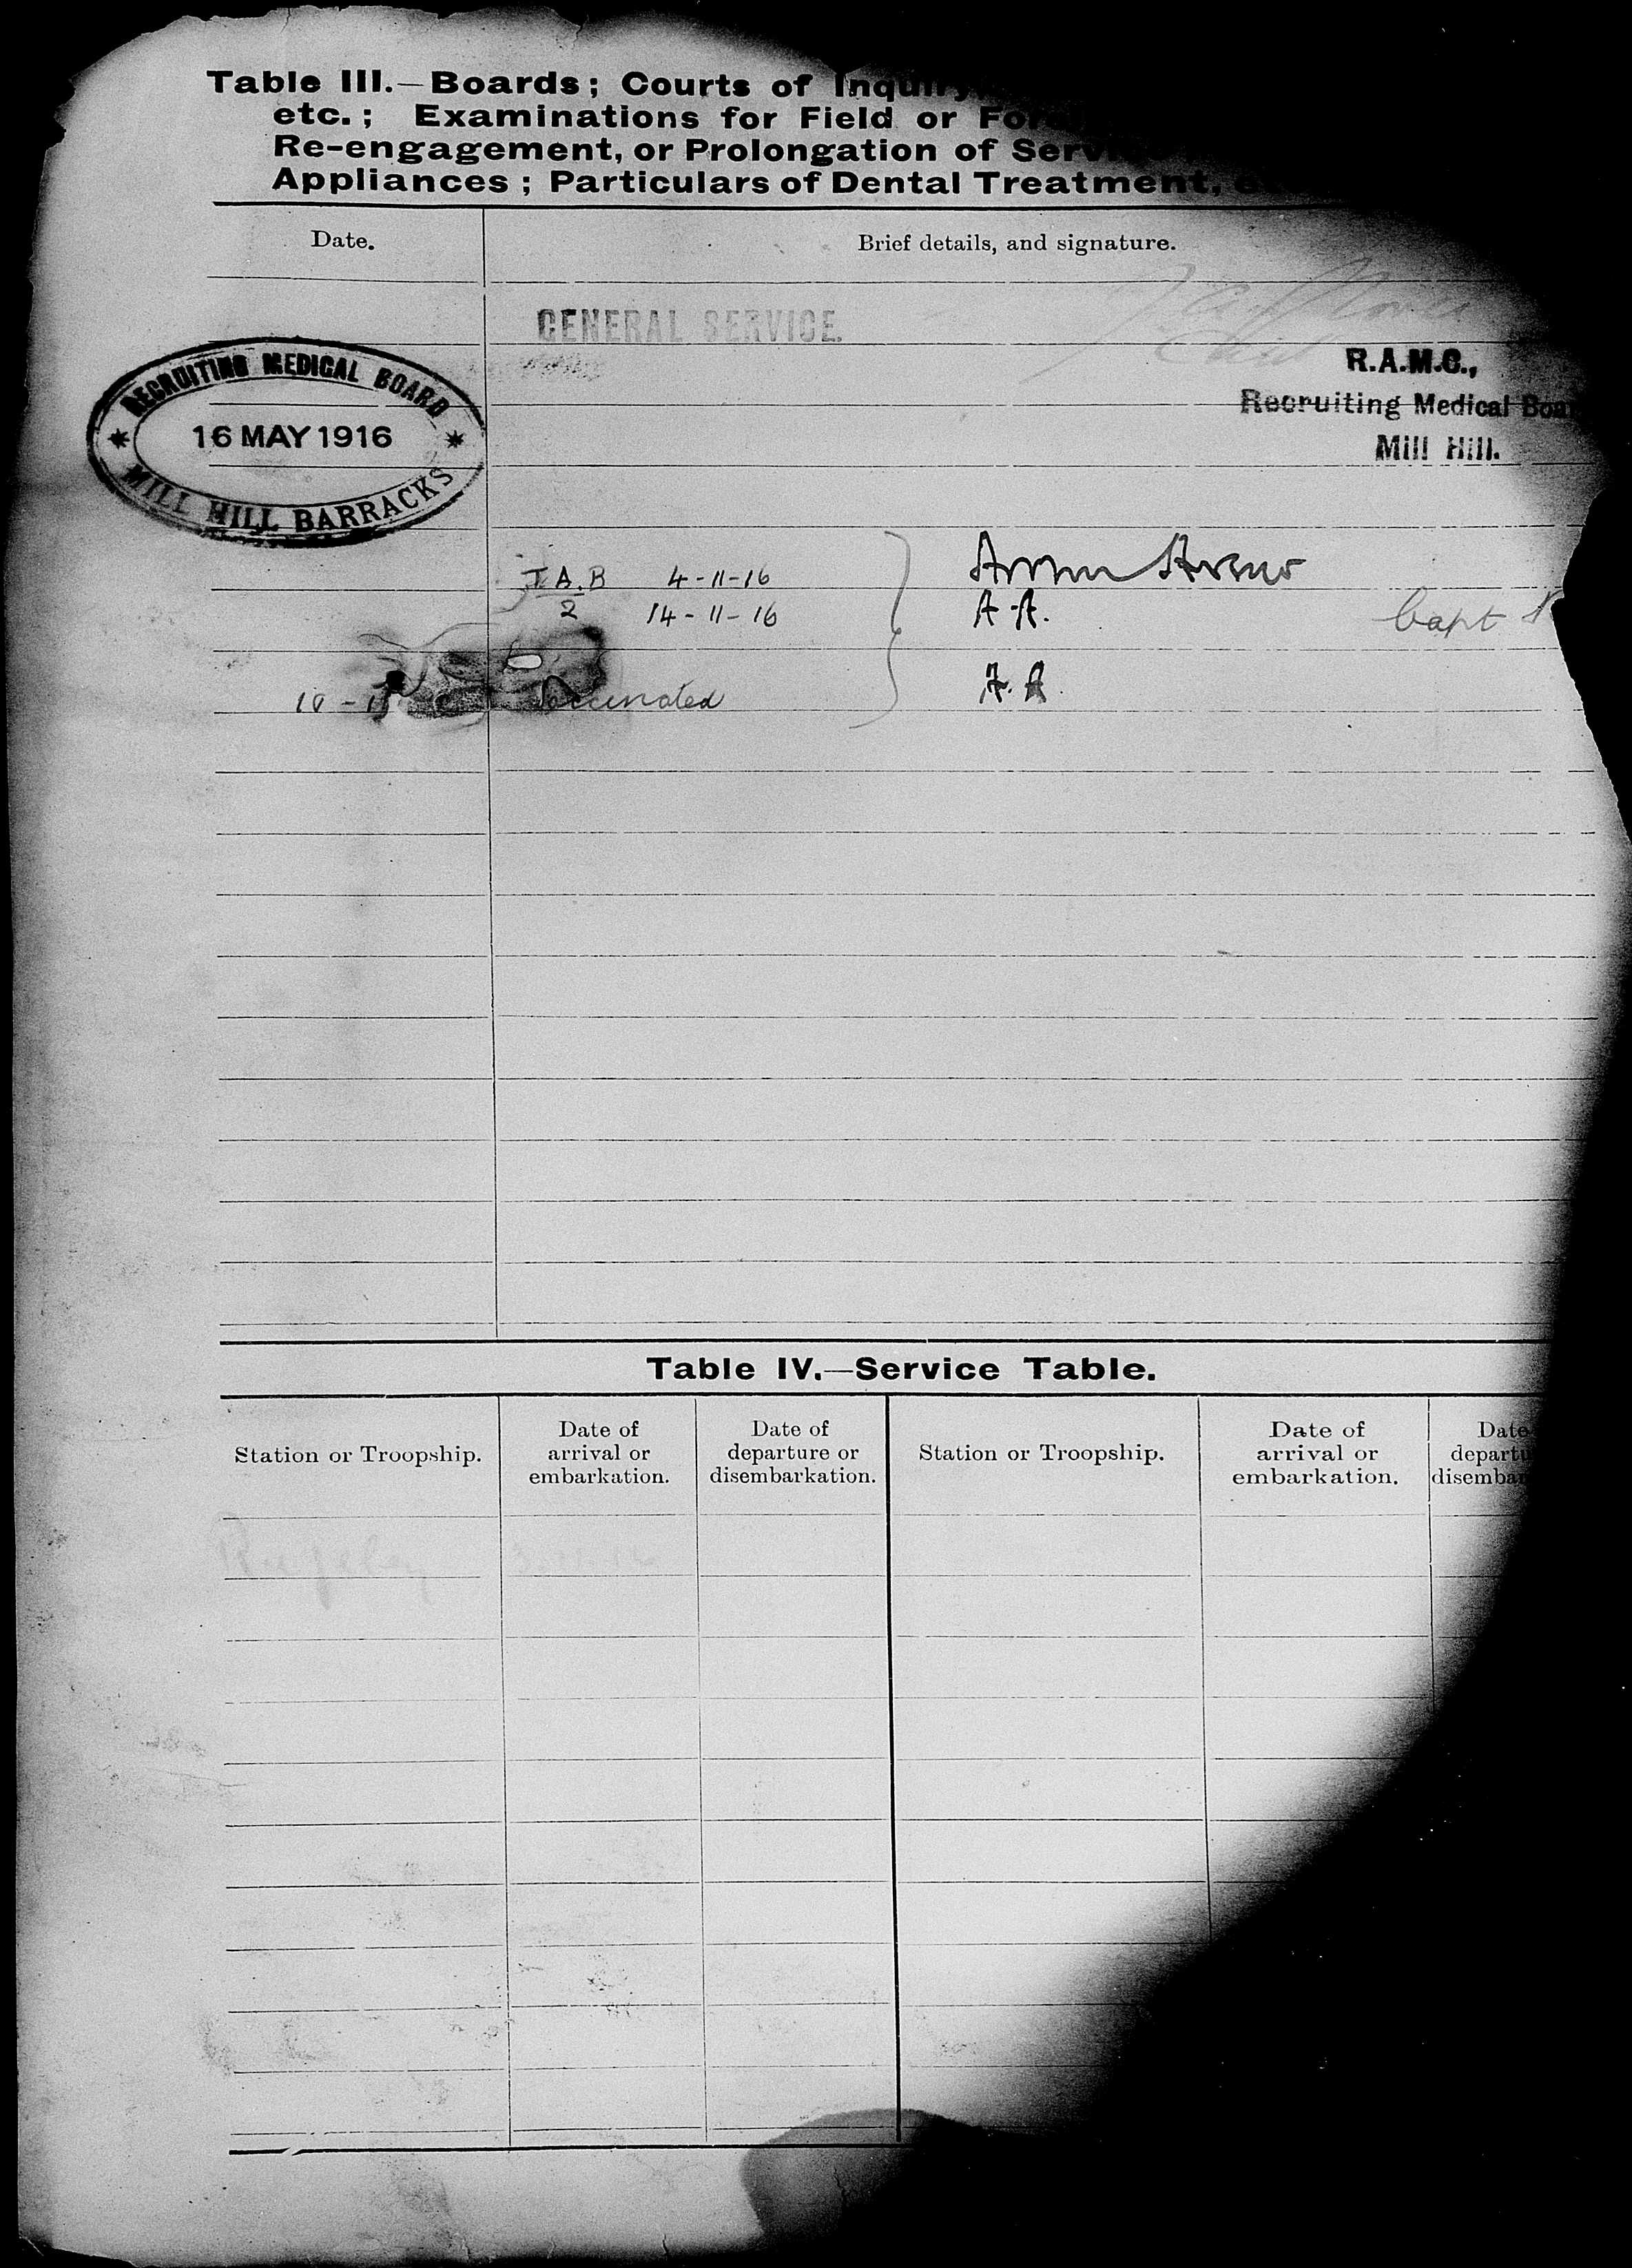 Table III.—Boards; Courts of Inquiry,
etc.; Examinations for Field or
Re-engagement, or Prolongation of
Appliances; Particulars of Dental Treatment,
Date.
Brief details, and signature.
GENERAL SERVICE.
RECRUITING MEDICAL BOARD
16 MAY 1916
MILL HILL BARRACKS
R.A.M.C.,
Recruiting Medical
Mill Hill.
4-11-16
2 14-11-16
A.A.
Capt
Vaccinated
A.A.
Table IV.—Service Table.
Station or Troopship.
Date of
arrival or
embarkation.
Date of
departure or
disembarkation.
Station or Troopship.
Date of
arrival or
embarkation.
Date
Rugeley